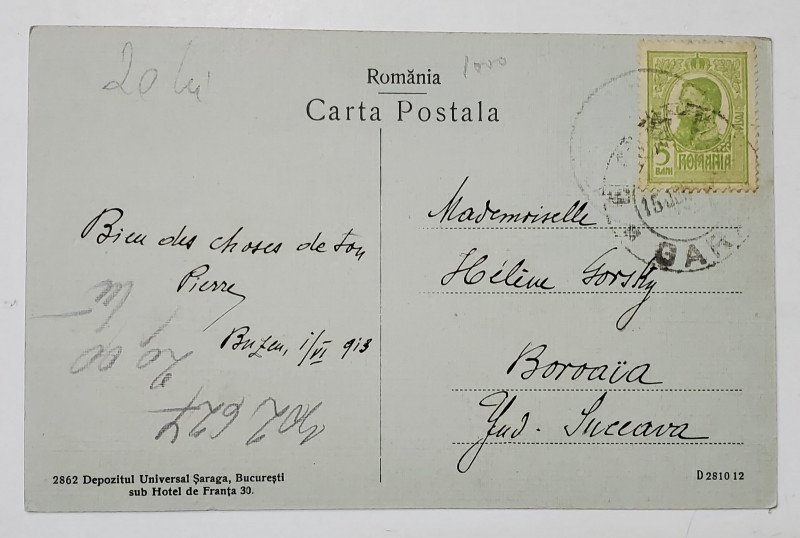 20 lei
1000
România
Carta Postala
5
BANI
ROMANIA
15
GAR
Bien des choses de ton
Pierre
Buzeu, 1/VI 913
Mademoiselle
Hélène Gorsky
Boroaïa
Jud. Suceava
lei
2000
102627
2862 Depozitul Universal Șaraga, București
sub Hotel de Franța 30.
D 2810 12